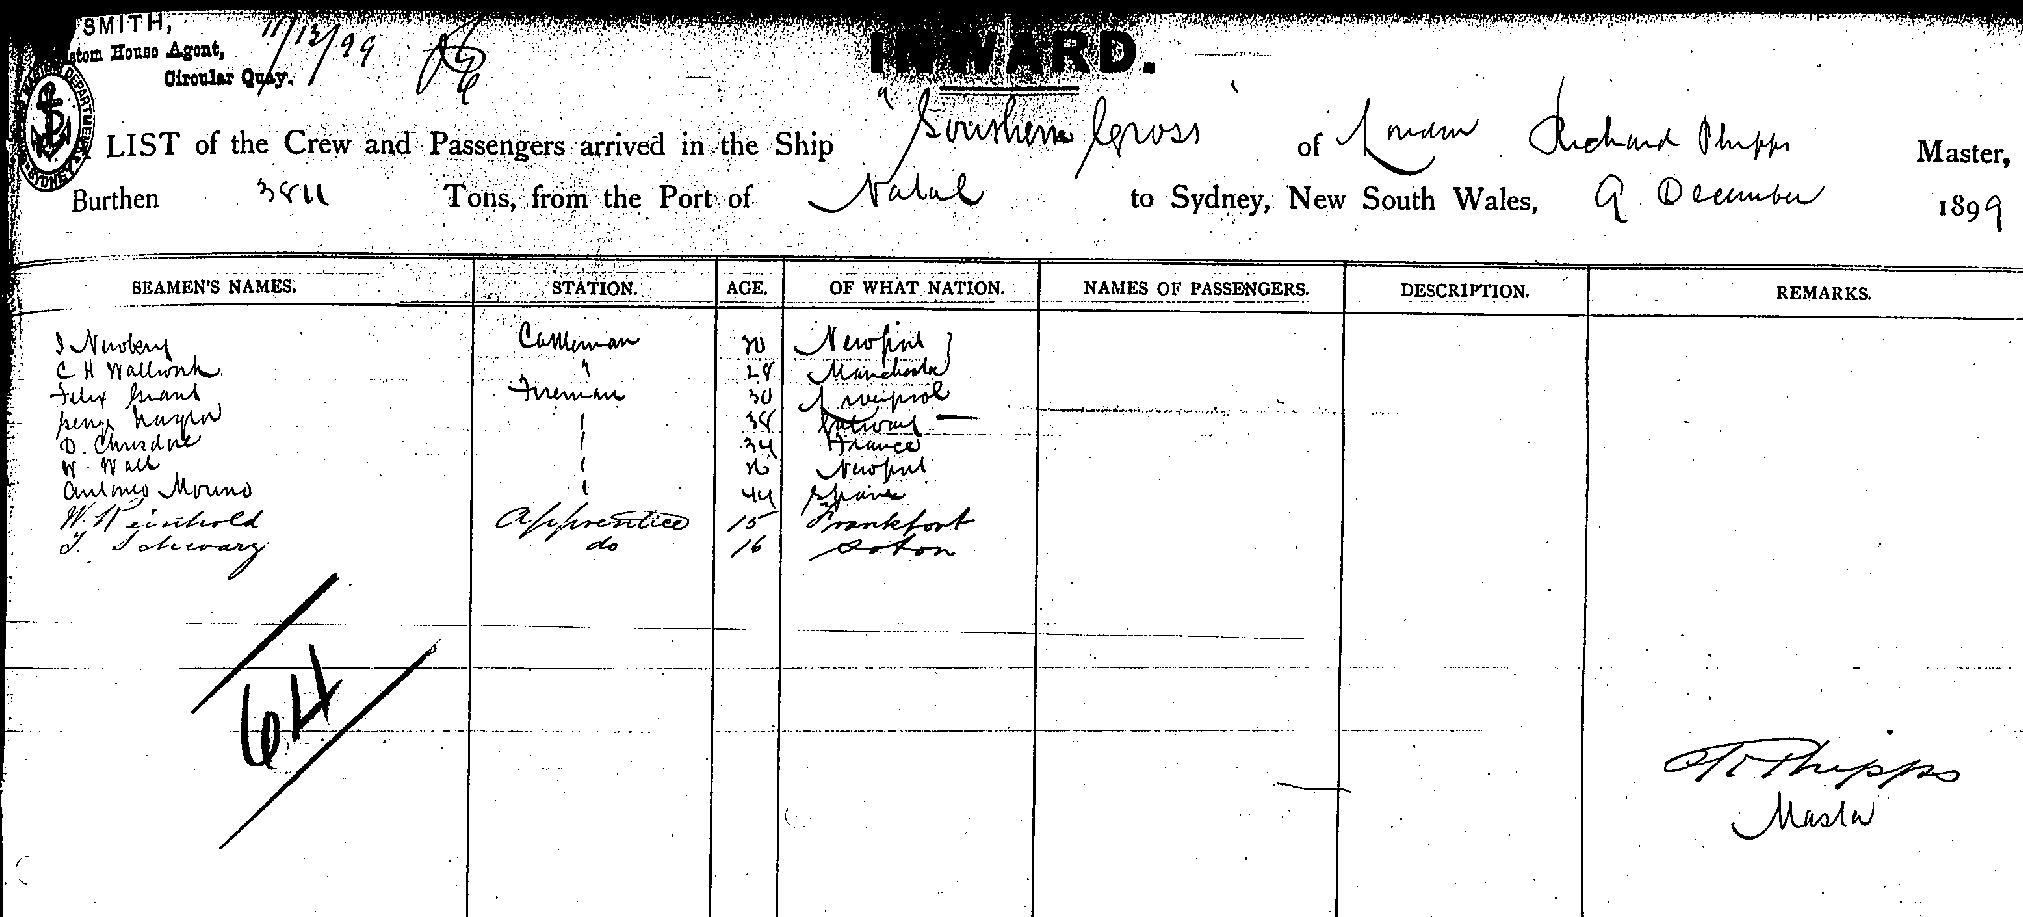 SMITH,
Custom House Agent,
Circular Quay.
11/12/99
INWARD.
LIST of the Crew and Passengers arrived in the Ship "Southern Cross" of London Richard Phipps Master,
Burthen 3811 Tons, from the Port of Natal to Sydney, New South Wales, 9 December 1899
SEAMEN'S NAMES. STATION. AGE. OF WHAT NATION. NAMES OF PASSENGERS. DESCRIPTION. REMARKS.
J Newbery Cattleman 30 Newport
C H Wallwork " 28 Manchester
Felix Grant Fireman 30 Liverpool
George Naylor " 38
D. " 34 France
W Wall " Newport
Antonio Moreno " 44 Spain
W. Reinhold Apprentice 15 Frankfort
T. Schwarz do 16 Soton
64
R Phipps
Master